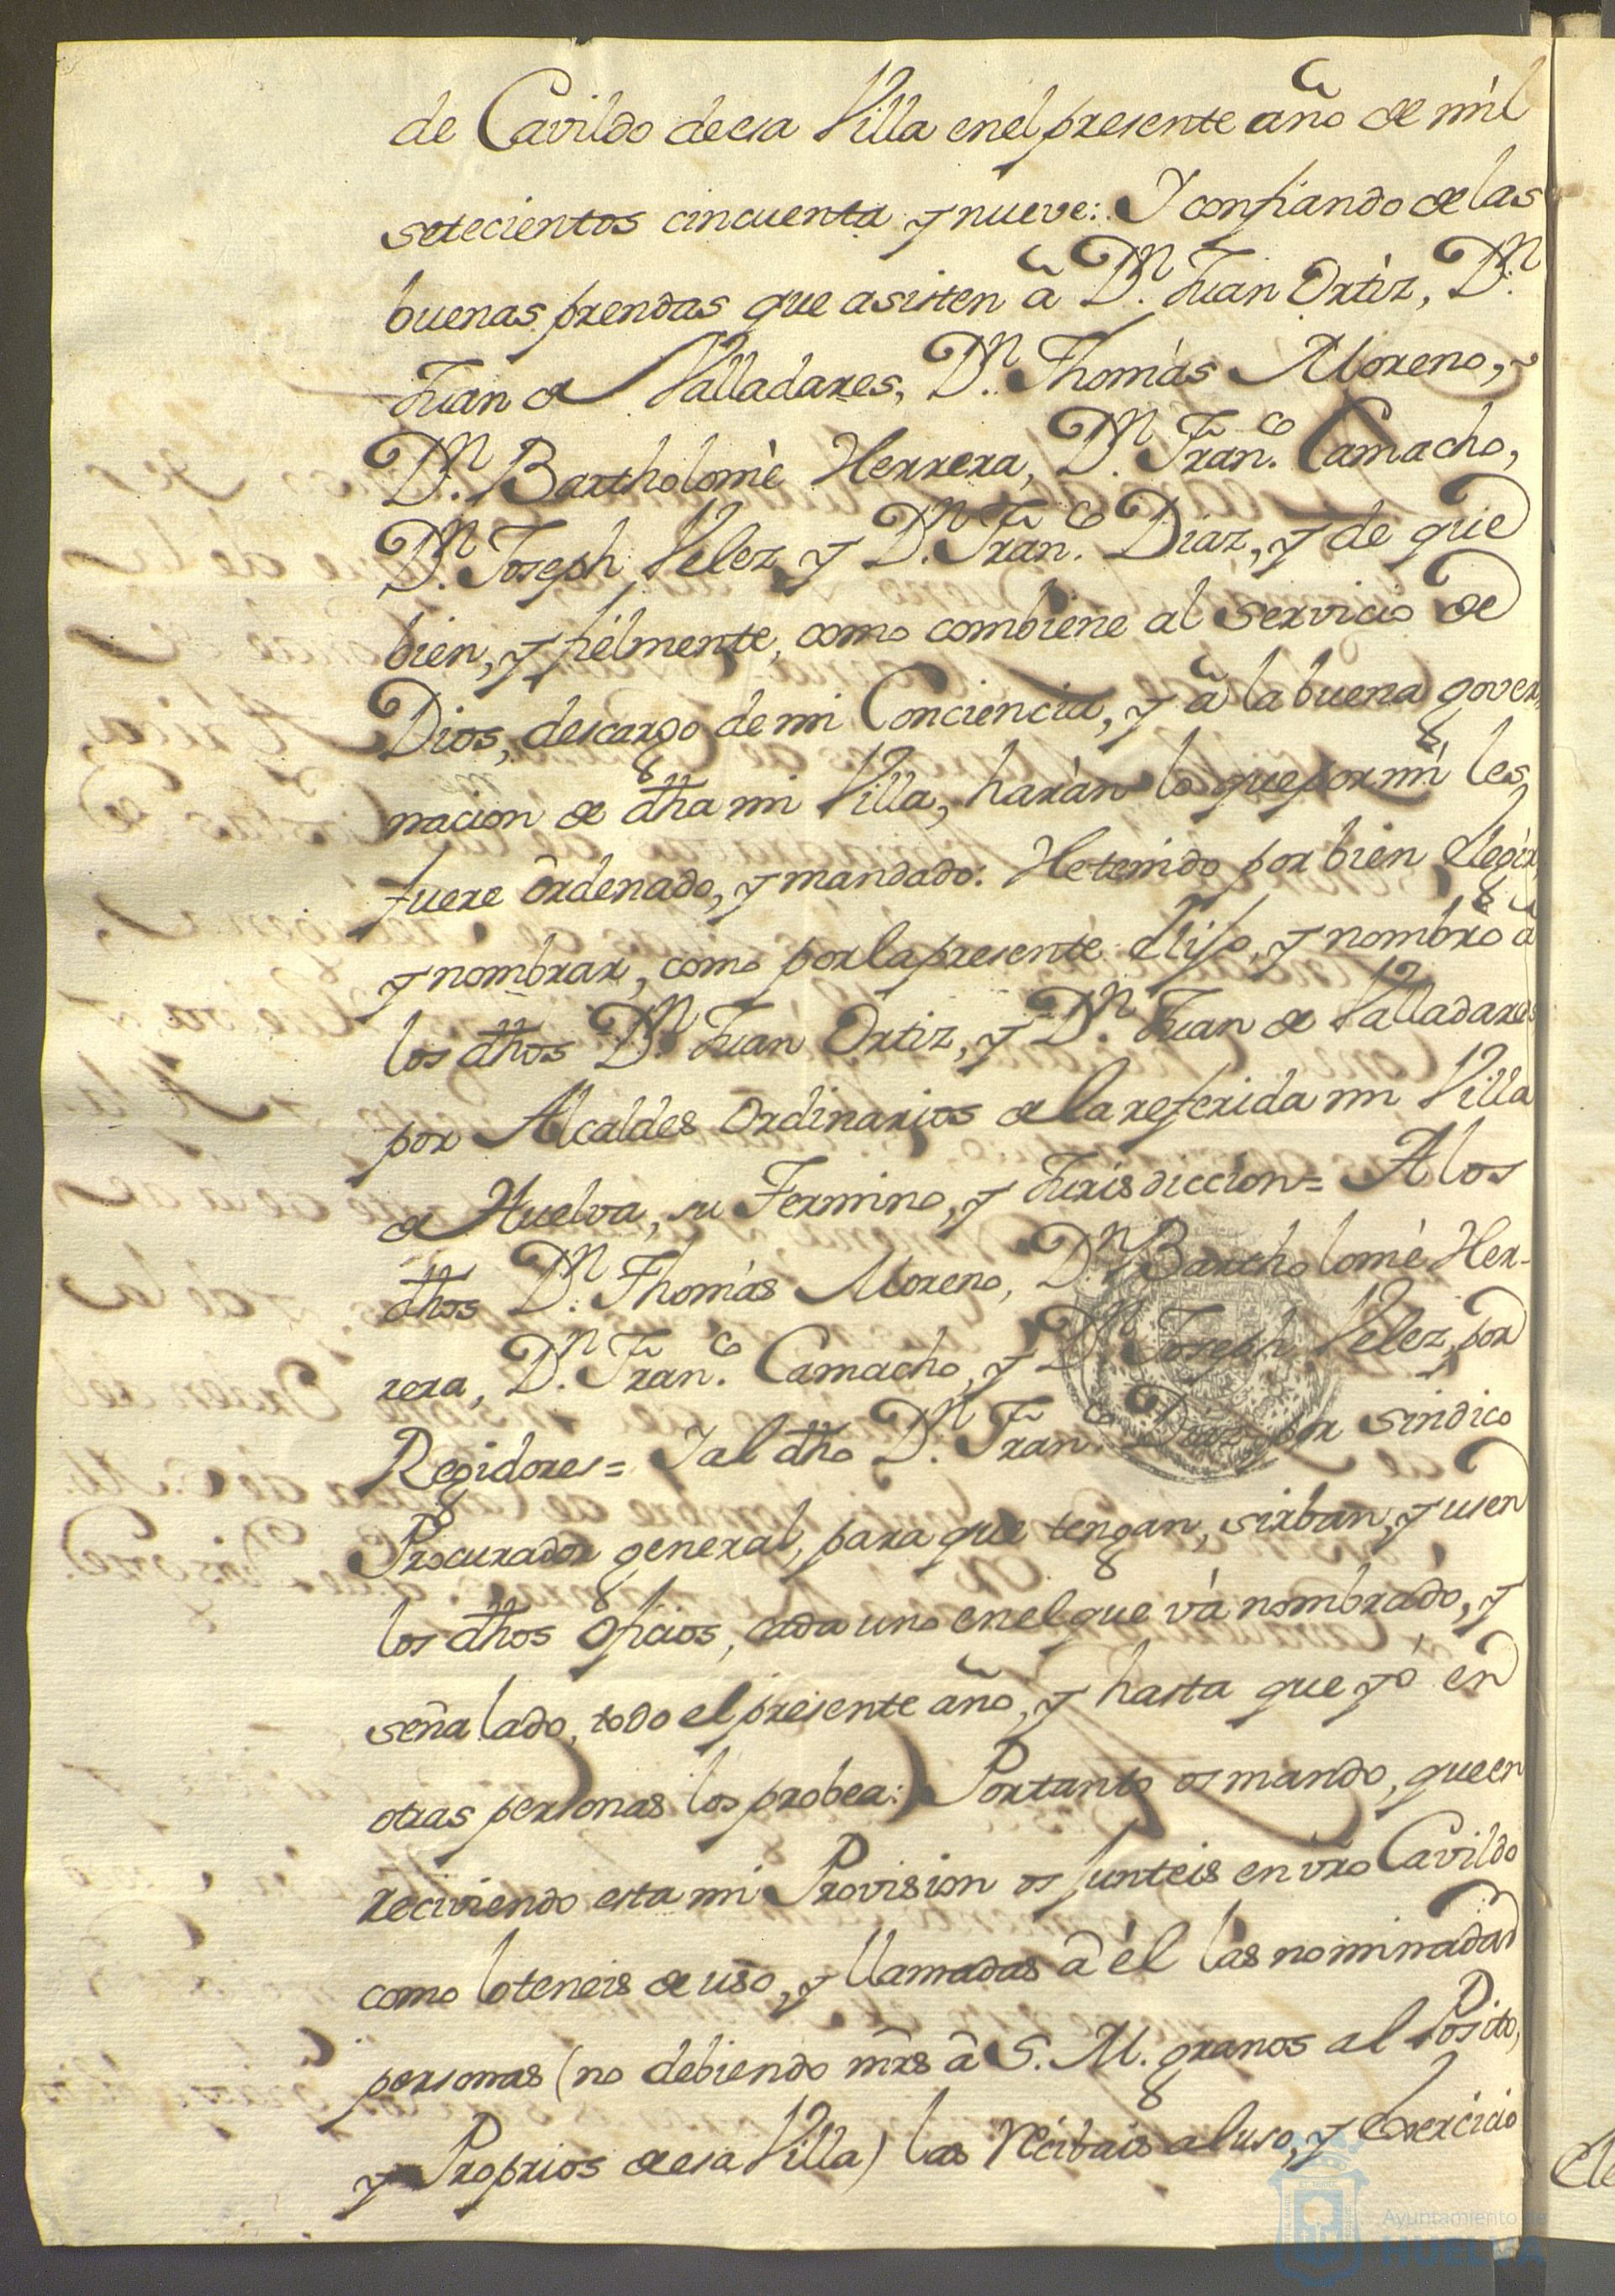 de Cavildo de esa Villa en el presente año de mil
setecientos cincuenta y nueve: Y confiando de las
buenas prendas que asisten â Dn. Juan Ortiz, Dn.
Juan de Valladares, Dn. Thomàs Moreno,
Dn. Bartholomè Herrera, Dn. Franco. Camacho,
Dn. Joseph Velez y Dn. Franco. Diaz, y de que
bien, y fielmente, como combiene al servicio de
Dios, descargo de mi Conciencia, y â la buena gover
nacion de dha mi Villa, haràn lo que por mi les
fuere ôrdenado, y mandado: He tenido por bien elegir
y nombrar, como por la presente elijo, y nombro â
los dhos Dn. Juan Ortiz, y Dn. Juan de Valladares
por Alcaldes Ordinarios de la referida mi Villa
de Huelva, su Termino, y Jurisdiccion= A los
dhos Dn. Thomàs Moreno, Dn. Bartholomè Her-
rera, Dn. Franco. Camacho, y Dn. Joseph Velez, por
Regidores= Y al dho Dn. Franco. Diaz, por Sindico
Procurador general, para que tengan, sirban, y usen
los dhos Oficios, cada uno en el que và nombrado, y
señalado, todo el presente año, y hasta que yo en
otras personas los probea: Portanto os mando, que en
reciviendo esta mi Provision os Junteis en vro Cavildo
como lo teneis de uso, y llamadas â èl las nominadas
personas (no debiendo mrs â S. M. granos al Posito,
y Proprios de esa Villa) las recibais al uso, y Exercicio
Ayuntamiento de
HUELVA